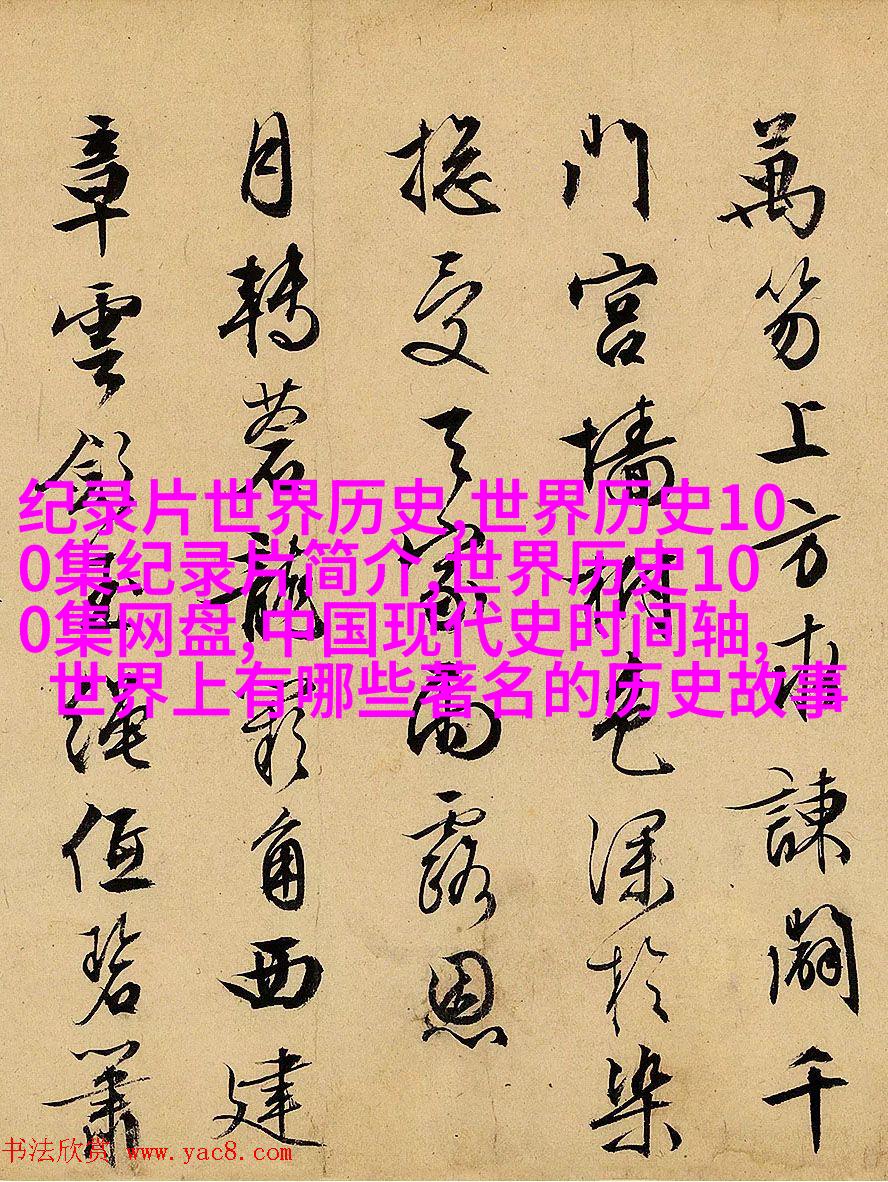 萬笏上方諫闢千
門宮墻色深於染
搃受天家雨露恩
月轉蒼龍角西建
章雲斂繩低碧簫
纪录片世界历史,世界历史10
0集纪录片简介,世界历史10
0集网盘,中国现代史时间轴,
世界上有哪些著名的历史故事
书法欣赏 www.yac8.com